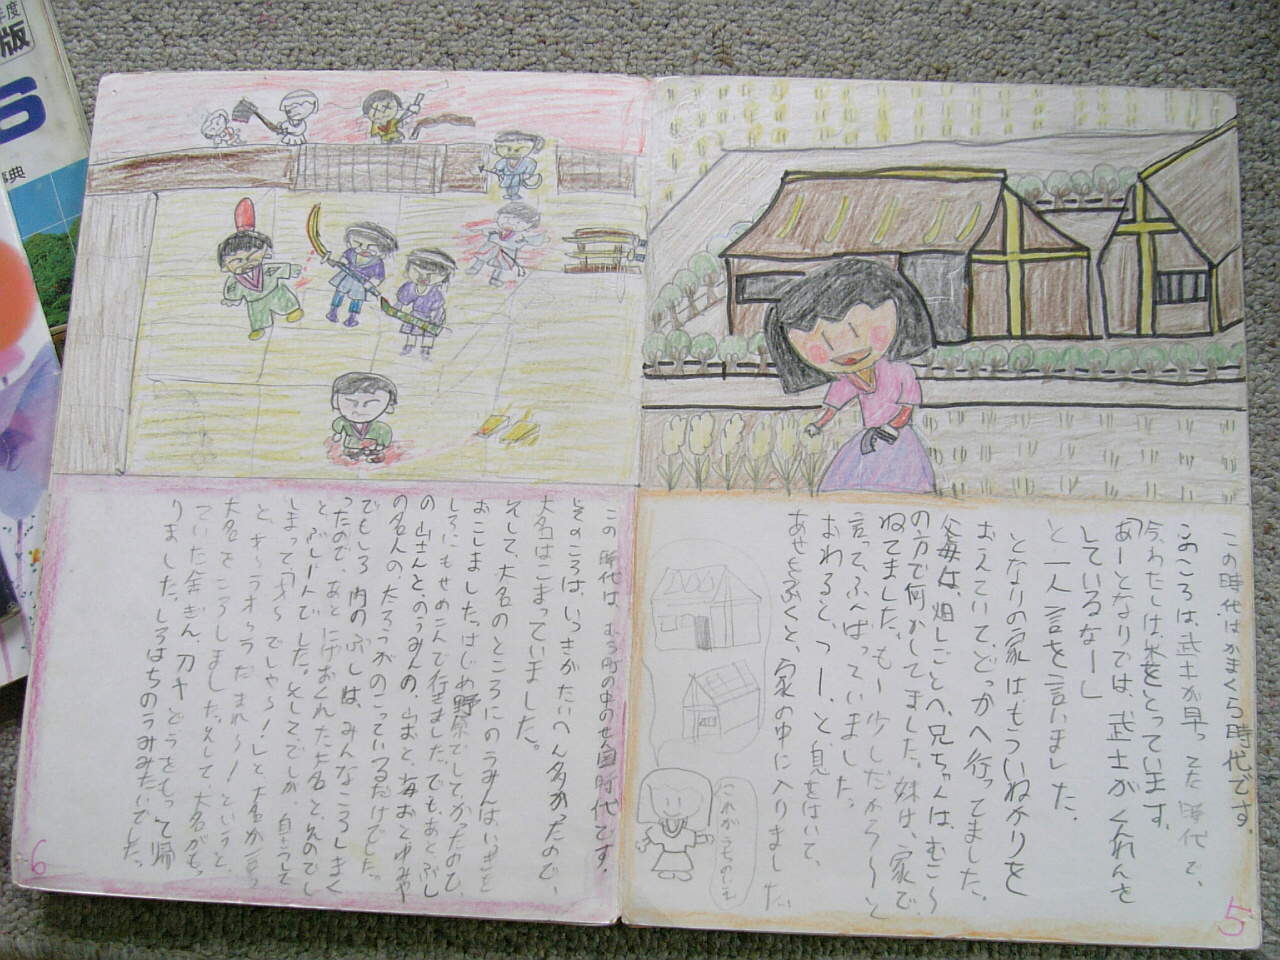 この時代はかまくら時代です。
このころは、武士が早ってた時代で、
今わたしは米をとっています。
「あーとなりでは、武士がくんれんを
しているなー」
と一人言を言いました。
となりの家はもういねかりを
おえていて、どっかへ行ってました。
父母は、畑しごとへ、兄ちゃんは、むこ〜
の方で何かしてました。妹は、家で、
ねてました。も〜少しだから〜と
言って、ふんばっていました。
おわると、つー、と、息をはいて、
あせをふくと、家の中に入りました。
これがうちのいえ
5
この時代は、むろ町の中のせん国時代です。
そのころは、いっきがたいへん多かったので、
大名はこまっていました。
そして、大名のところにのうみんは、いっきを
おこしました。はじめ野原でして、かったので、
しろにもせめこんで行きました。でも、あとぶし
の山さんと、のうみんの、山おと、海おとゆみや
の名人の、たろうがのこっているだけでした。
でもしろ内のぶしは、みんなころしまく
ったので、あとにげおくれた大名と、
ぶし一人でした。そして
しまって
と、大名が言っ
だまれ〜!というと、
大名をころしました。そして、大名がもっ
ていた金ぎん、刀やどうぐをもって帰
りました。しろはちのうみみたいでした。
6
版
6